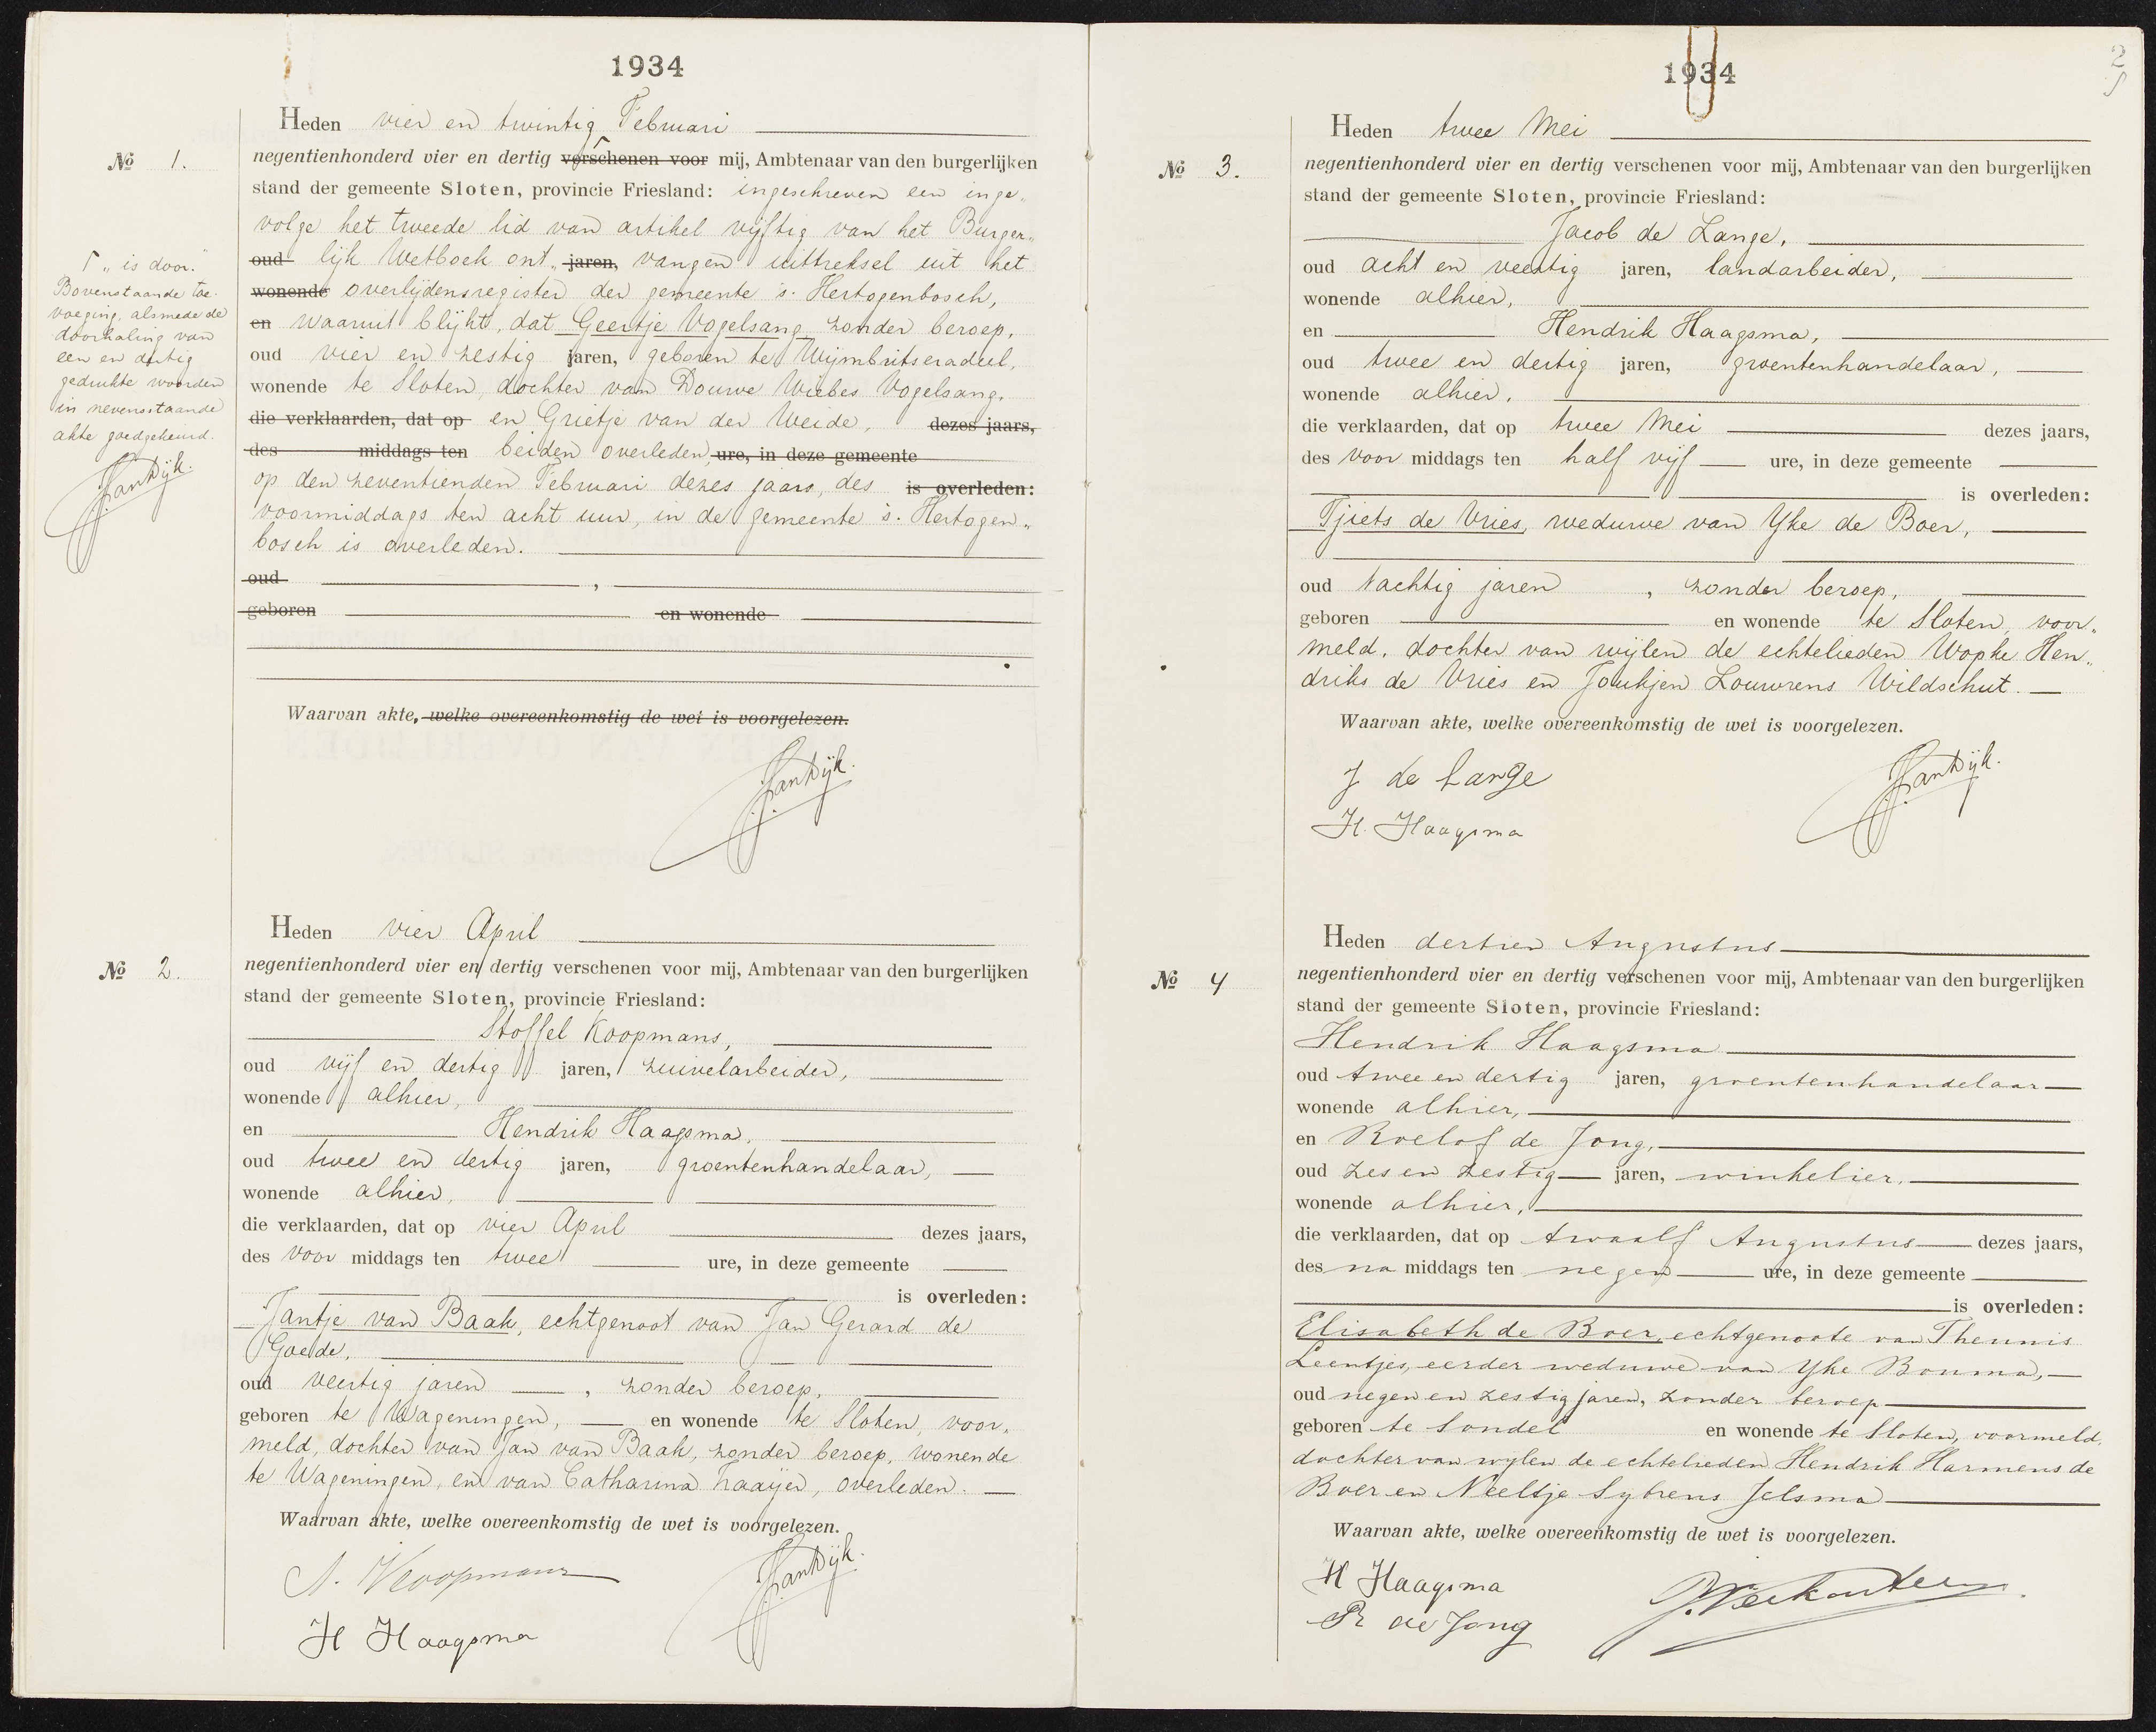 1934
Heden vier en twintig Februari
No 1.
negentienhonderd vier en dertig verschenen voor mij, Ambtenaar van den burgerlijken
stand der gemeente Sloten, provincie Friesland: ingeschreven een inge„
volge het tweede lid van artikel vijftig van het Burger„
oud lijk Wetboek ont„ jaren, vangen uittreksel uit het
wonende overlijdensregister der gemeente 's. Hertogenbosch,
en waaruit blijkt, dat Geertje Vogelsang zonder beroep,
oud vier en zestig jaren, geboren te Wijmbritseradeel,
wonende te Sloten, dochter van Douwe Wiebes Vogelsang,
die verklaarden, dat op en Grietje van der Weide, dezes jaars,
des middags ten beiden overleden, ure, in deze gemeente
op den zeventienden Februari dezes jaars, des is overleden:
voormiddags ten acht uur, in de gemeente 's. Hertogen„
bosch is overleden.
oud ,
geboren en wonende
Waarvan akte, welke overeenkomstig de wet is voorgelezen.
JvanDijk.
Γ „ is door."
Bovenstaande toe„
voeging, alsmede de
doorhaling van
een en dertig
gedrukte woorden
in nevensstaande
akte goedgekeurd.
JvanDijk.
Heden vier April
No 2.
negentienhonderd vier en dertig verschenen voor mij, Ambtenaar van den burgerlijken
stand der gemeente Sloten, provincie Friesland:
Stoffel Koopmans,
oud vijf en dertig jaren, zuivelarbeider,
wonende alhier,
en Hendrik Haagsma,
oud twee en dertig jaren, groentenhandelaar,
wonende alhier,
die verklaarden, dat op vier April dezes jaars,
des voor middags ten twee ure, in deze gemeente
is overleden:
Jantje van Baak, echtgenoot van Jan Gerard de
Goede,
oud veertig jaren , zonder beroep,
geboren te Wageningen, en wonende te Sloten, voor„
meld, dochter van Jan van Baak, zonder beroep, wonende
te Wageningen, en van Catharina Fraaije, overleden.
Waarvan akte, welke overeenkomstig de wet is voorgelezen.
S. Koopmans
JvanDijk.
H Haagsma
1934
2
Heden twee Mei
No 3.
negentienhonderd vier en dertig verschenen voor mij, Ambtenaar van den burgerlijken
stand der gemeente Sloten, provincie Friesland:
Jacob de Lange,
oud acht en veertig jaren, landarbeider,
wonende alhier,
en Hendrik Haagsma,
oud twee en dertig jaren, groentenhandelaar,
wonende alhier,
die verklaarden, dat op twee Mei dezes jaars,
des voor middags ten half vijf ure, in deze gemeente
is overleden:
Tjiets de Vries, weduwe van Yke de Boer,
oud tachtig jaren , zonder beroep,
geboren en wonende te Sloten, voor„
meld, dochter van wijlen de echtelieden Wopke Hen„
driks de Vries en Joukjen Louwrens Wildschut.
Waarvan akte, welke overeenkomstig de wet is voorgelezen.
J de Lange
JvanDijk.
H. Haagsma
Heden dertien Augustus
No 4
negentienhonderd vier en dertig verschenen voor mij, Ambtenaar van den burgerlijken
stand der gemeente Sloten, provincie Friesland:
Hendrik Haagsma
oud twee en dertig jaren, groentenhandelaar
wonende alhier,
en Roelof de Jong,
oud zes en zestig jaren, winkelier,
wonende alhier,
die verklaarden, dat op twaalf Augustus dezes jaars,
des na middags ten negen ure, in deze gemeente
is overleden:
Elisabeth de Boer, echtgenoote van Theunis
Leentjes, eerder weduwe van Yke Bouma,
oud negen en zestig jaren, zonder beroep
geboren te Sondel en wonende te Sloten, voormeld,
dochter van wijlen de echtelieden Hendrik Harmens de
Boer en Neeltje Sybrens Jelsma
Waarvan akte, welke overeenkomstig de wet is voorgelezen.
H Haagsma
R de Jong